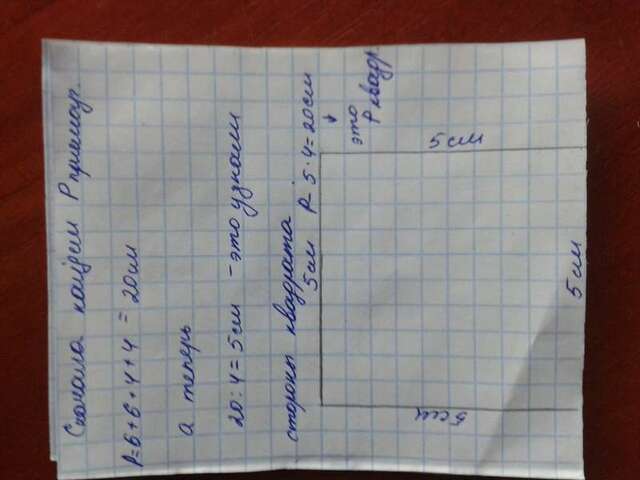 Сначала найдем P прямоуг.
P=6+6+4+4 = 20см
а теперь
20:4=5см - это узнали
стороны квадрата
5см P- 5·4=20см
↓
это
P квадр.
5см
5см
5см